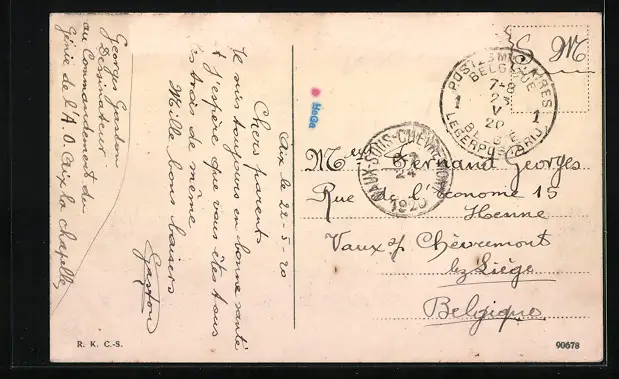 Georges Gaston
Dessinateur
au Commandement du
Génie de l'A.O. Aix la chapelle
Aix le 22-5-20
Chers parents
Je suis toujours en bonne santé
et j'espère que vous êtes tous
trois de même
Mille bons baisers
Gaston
R. K. C.-S.
HeGa
S. M.
BELGIQUE
7-8
23
V
20
1 1
LEGERPOST
VAUX-SOUS-CHEVREMONT
24
1920
Fernand Georges
Rue de l'économe 15
Henne
Vaux s/ Chèvremont
lez Liège
Belgique
90678